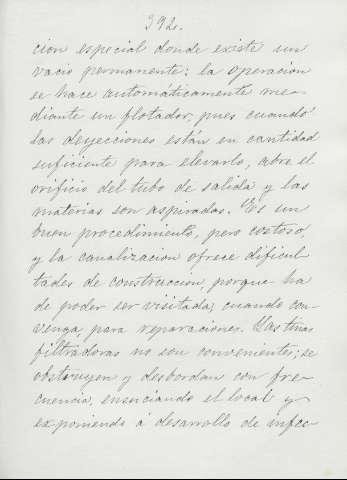 392.
cion especial donde existe un
vacio permanente: la operacion
se hace automáticamente me-
diante un flotador, pues cuando
las deyecciones están en cantidad
suficiente para elevarlo, abre el
orificio del tubo de salida y las
materias son aspiradas. Es un
buen procedimiento, pero costoso
y la canalizacion ofrece dificul
tades de construccion, porque ha
de poder ser visitada, cuando con-
venga, para reparaciones. Las tinas
filtradoras no son convenientes; se
obstruyen y desbordan con fre-
cuencia, ensuciando el local y
exponiendo á desarrollo de infec-